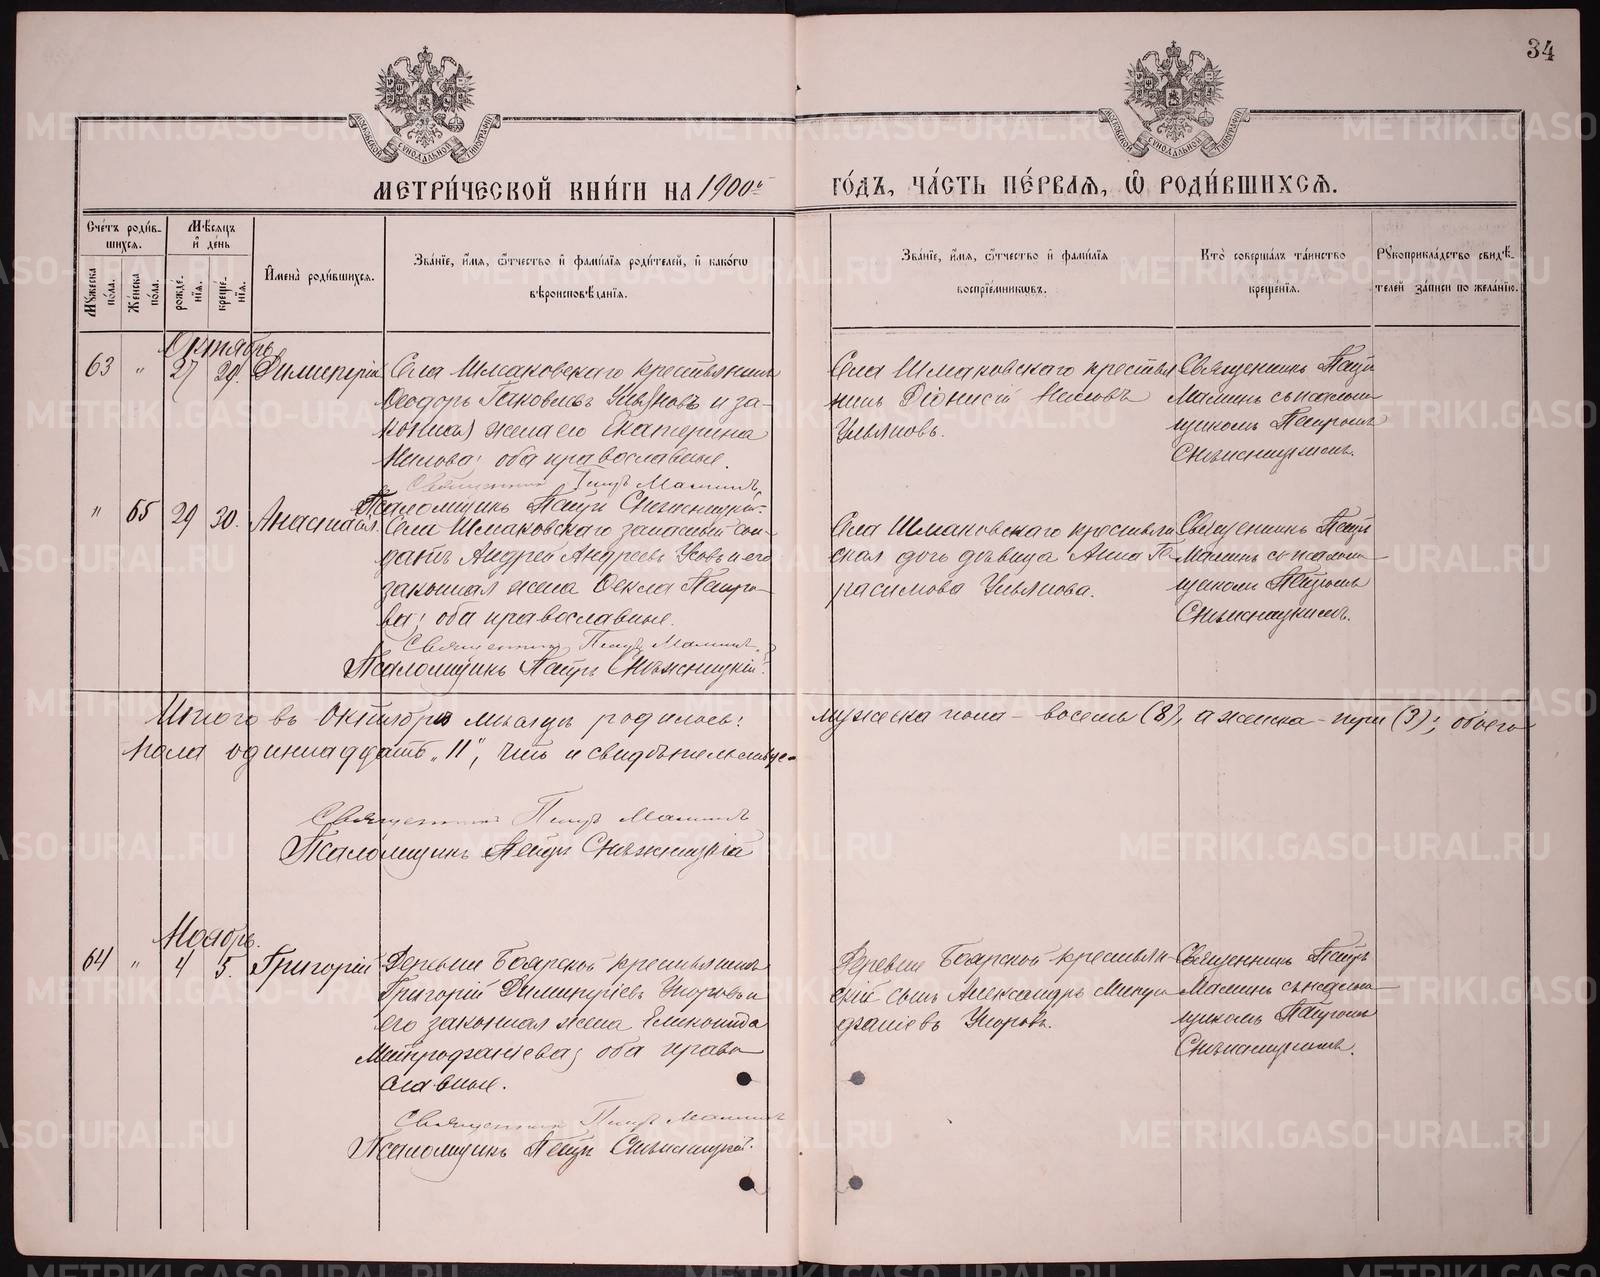 34
МОСКОВСКОЙ СѴНОДАЛЬНОЙ ТИПОГРАФІИ
МОСКОВСКОЙ СѴНОДАЛЬНОЙ ТИПОГРАФІИ
МЕТРИ́ЧЕСКОЙ КНИ́ГИ НА 1900й
ГО́ДЪ, ЧА́СТЬ ПЕ́РВАѦ, Ѡ҆ РОДИ́ВШИХСѦ.
Сче́тъ роди́в-
шихсѧ.
Мѣ́сѧцъ
и҆ де́нь
Мꙋ́жеска
по́ла.
Же́нска
по́ла.
рожде́-
нїѧ.
креще́-
нїѧ.
И҆мена̀ роди́вшихсѧ.
Зва́нїе, и҆́мѧ, ѻ҆́тчество и҆ фами́лїѧ роди́телей, и҆ како́гѡ
вѣроисповѣ́данїѧ.
Зва́нїе, и҆́мѧ, ѻ҆́тчество и҆ фами́лїѧ
воспрїе́мникѡвъ.
Кто̀ соверша́лъ та́инство
креще́нїѧ.
Рꙋкоприкла́дство свидѣ́-
телей за́писи по жела́нїю.
Октябрь
63 " 27 29. Димитрій
Села Шмаковскаго крестьянинъ
Ѳеодоръ Іаковлевъ Ульяновъ и за-
конная жена его Екатерина
Нилова; оба православные.
Священникъ Петръ Маминъ
Псаломщикъ Петръ Снѣжницкій.
Села Шмаковскаго крестья-
нинъ Діонисій Ниловъ
Ульяновъ.
Священникъ Петръ
Маминъ съ псалом-
щикомъ Петромъ
Снѣжницкимъ.
" 65 29 30. Анастасія
Села Шмаковскаго запасный сол-
датъ Андрей Андреевъ Усовъ и его
законная жена Ѳекла Петро-
ва; оба православные.
Священникъ Петръ Маминъ
Псаломщикъ Петръ Снѣжницкій.
Села Шмаковскаго крестьян-
ская дочь дѣвица Анна Ге-
расимова Ульянова.
Священникъ Петръ
Маминъ съ псалом-
щикомъ Петромъ
Снѣжницкимъ.
Итого въ Октябрѣ мѣсяцѣ родилось: мужеска пола - восемь (8), а женска - три (3); обоего
пола одиннадцать „11",
Священникъ Петръ Маминъ
Псаломщикъ Петръ Снѣжницкій
Ноябрь.
64 " 4 5. Григорій
Деревни Боярской крестьянинъ
Григорій Димитріевъ Упоровъ и
его законная жена Еликонида
Митрофаніева; оба право-
славные.
Священникъ Петръ Маминъ
Псаломщикъ Петръ Снѣжницкій.
Деревни Боярской крестьян-
скій сынъ Александръ Митро-
фаніевъ Упоровъ.
Священникъ Петръ
Маминъ съ псалом-
щикомъ Петромъ
Снѣжницкимъ.
METRIKI.GASO-URAL.RU